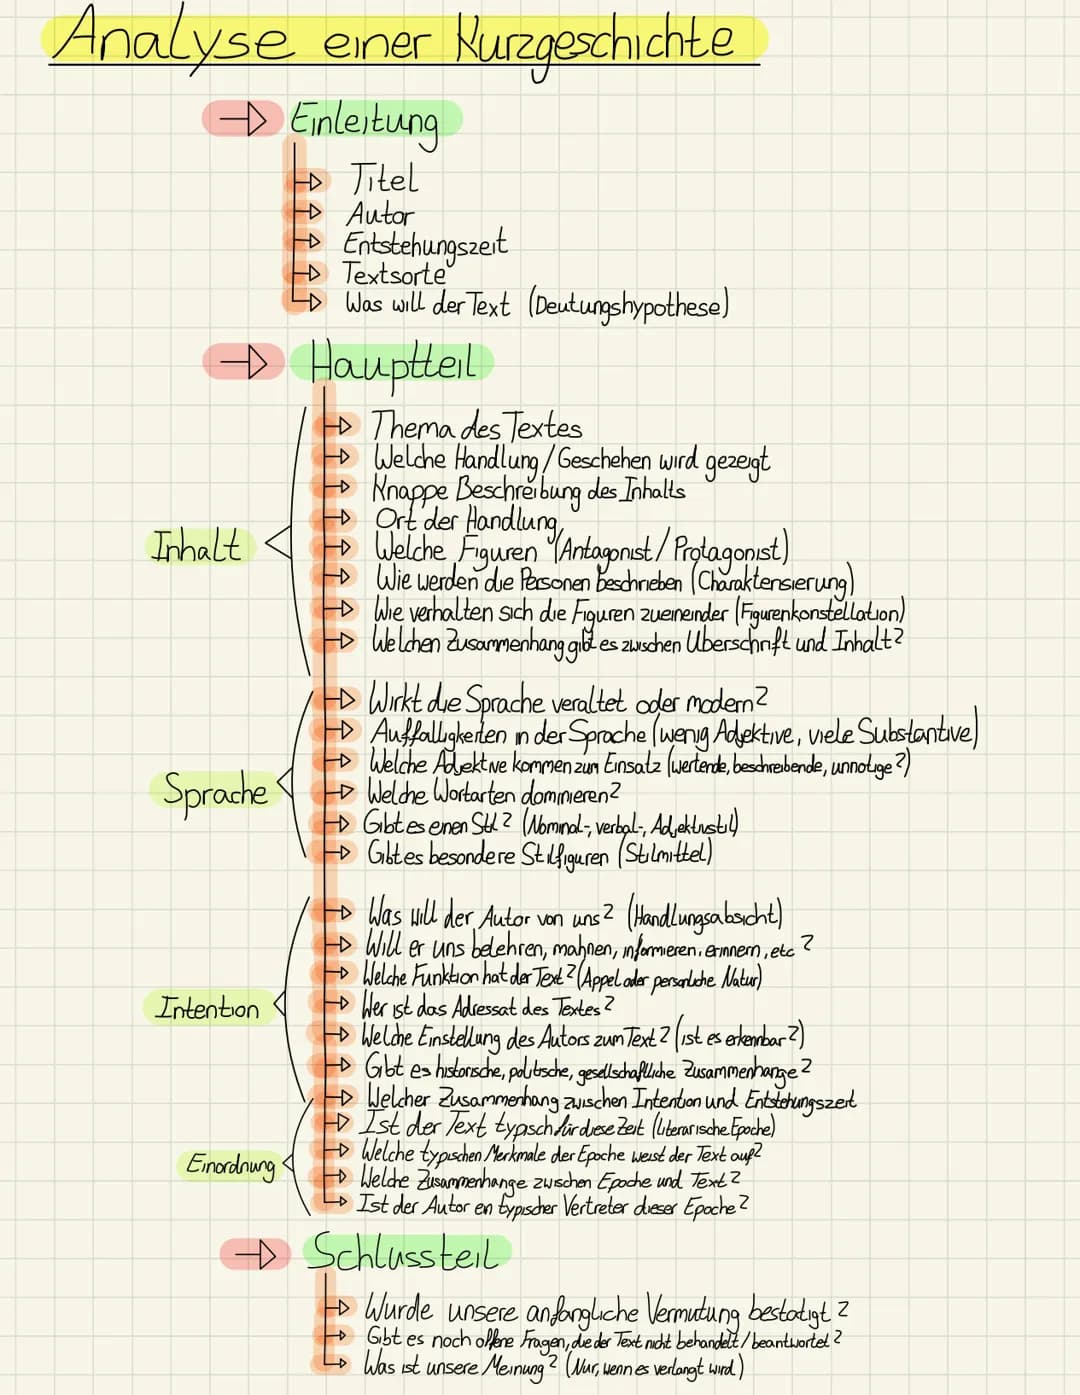 Analyse einer Kurzgeschichte
Einleitung
Titel
Autor
Entstehungszeit
Textsorte
Was will der Text (Deutungshypothese)
Hauptteil
Inhalt
Thema des Textes
Welche Handlung/Geschehen wird gezeigt
Knappe Beschreibung des Inhalts
Ort der Handlung
Welche Figuren (Antagonist/Protagonist)
Wie werden die Personen beschrieben (Charakterisierung)
Wie verhalten sich die Figuren zueineinder (Figurenkonstellation)
Welchen Zusammenhang gibt es zwischen Uberschrift und Inhalt?
Sprache
Wirkt die Sprache veraltet oder modern?
Auffalligkeiten in der Sprache (wenig Adjektive, viele Substantive)
Welche Adjektive kommen zum Einsatz (wertende, beschreibende, unnotige?)
Welche Wortarten dominieren?
Gibt es einen Stil? (Nominal-, verbal-, Adjektivstil)
Gibt es besondere Stilfiguren (Stilmittel)
Intention
Was will der Autor von uns? (Handlungsabsicht)
Will er uns belehren, mahnen, informieren, erinnern, etc?
Welche Funktion hat der Text? (Appel oder personliche Natur)
Wer ist das Adressat des Textes?
Welche Einstellung des Autors zum Text? (ist es erkennbar?)
Gibt es historische, politische, gesellschaftliche Zusammenhange?
Welcher Zusammenhang zwischen Intention und Entstehungszeit
Einordnung
Ist der Text typisch für diese Zeit (literarische Epoche)
Welche typischen Merkmale der Epoche weist der Text auf?
Welche Zusammenhange zwischen Epoche und Text?
Ist der Autor en typischer Vertreter dieser Epoche?
Schlussteil
Wurde unsere anfangliche Vermutung bestatigt?
Gibt es noch offene Fragen, die der Text nicht behandelt/beantwortet?
Was ist unsere Meinung? (Nur, wenn es verlangt wird)